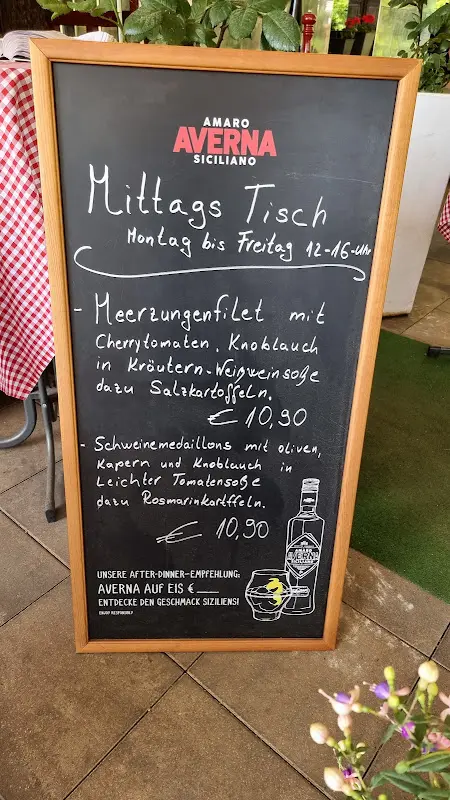 AMARO
AVERNA
SICILIANO
Mittags Tisch
Montag bis Freitag 12-16-Uhr
- Meerzungenfilet mit
Cherrytomaten, Knoblauch
in Kräutern-Weißweinsoße
dazu Salzkartoffeln.
€ 10,90
- Schweinemedaillons mit oliven,
Kapern und Knoblauch in
Leichter Tomatensoße
dazu Rosmarinkartffeln.
€ 10,90
UNSERE AFTER-DINNER-EMPFEHLUNG:
AVERNA AUF EIS €____
ENTDECKE DEN GESCHMACK SIZILIENS!
ENJOY RESPONSIBLY
AMARO
AVERNA
SICILIANO